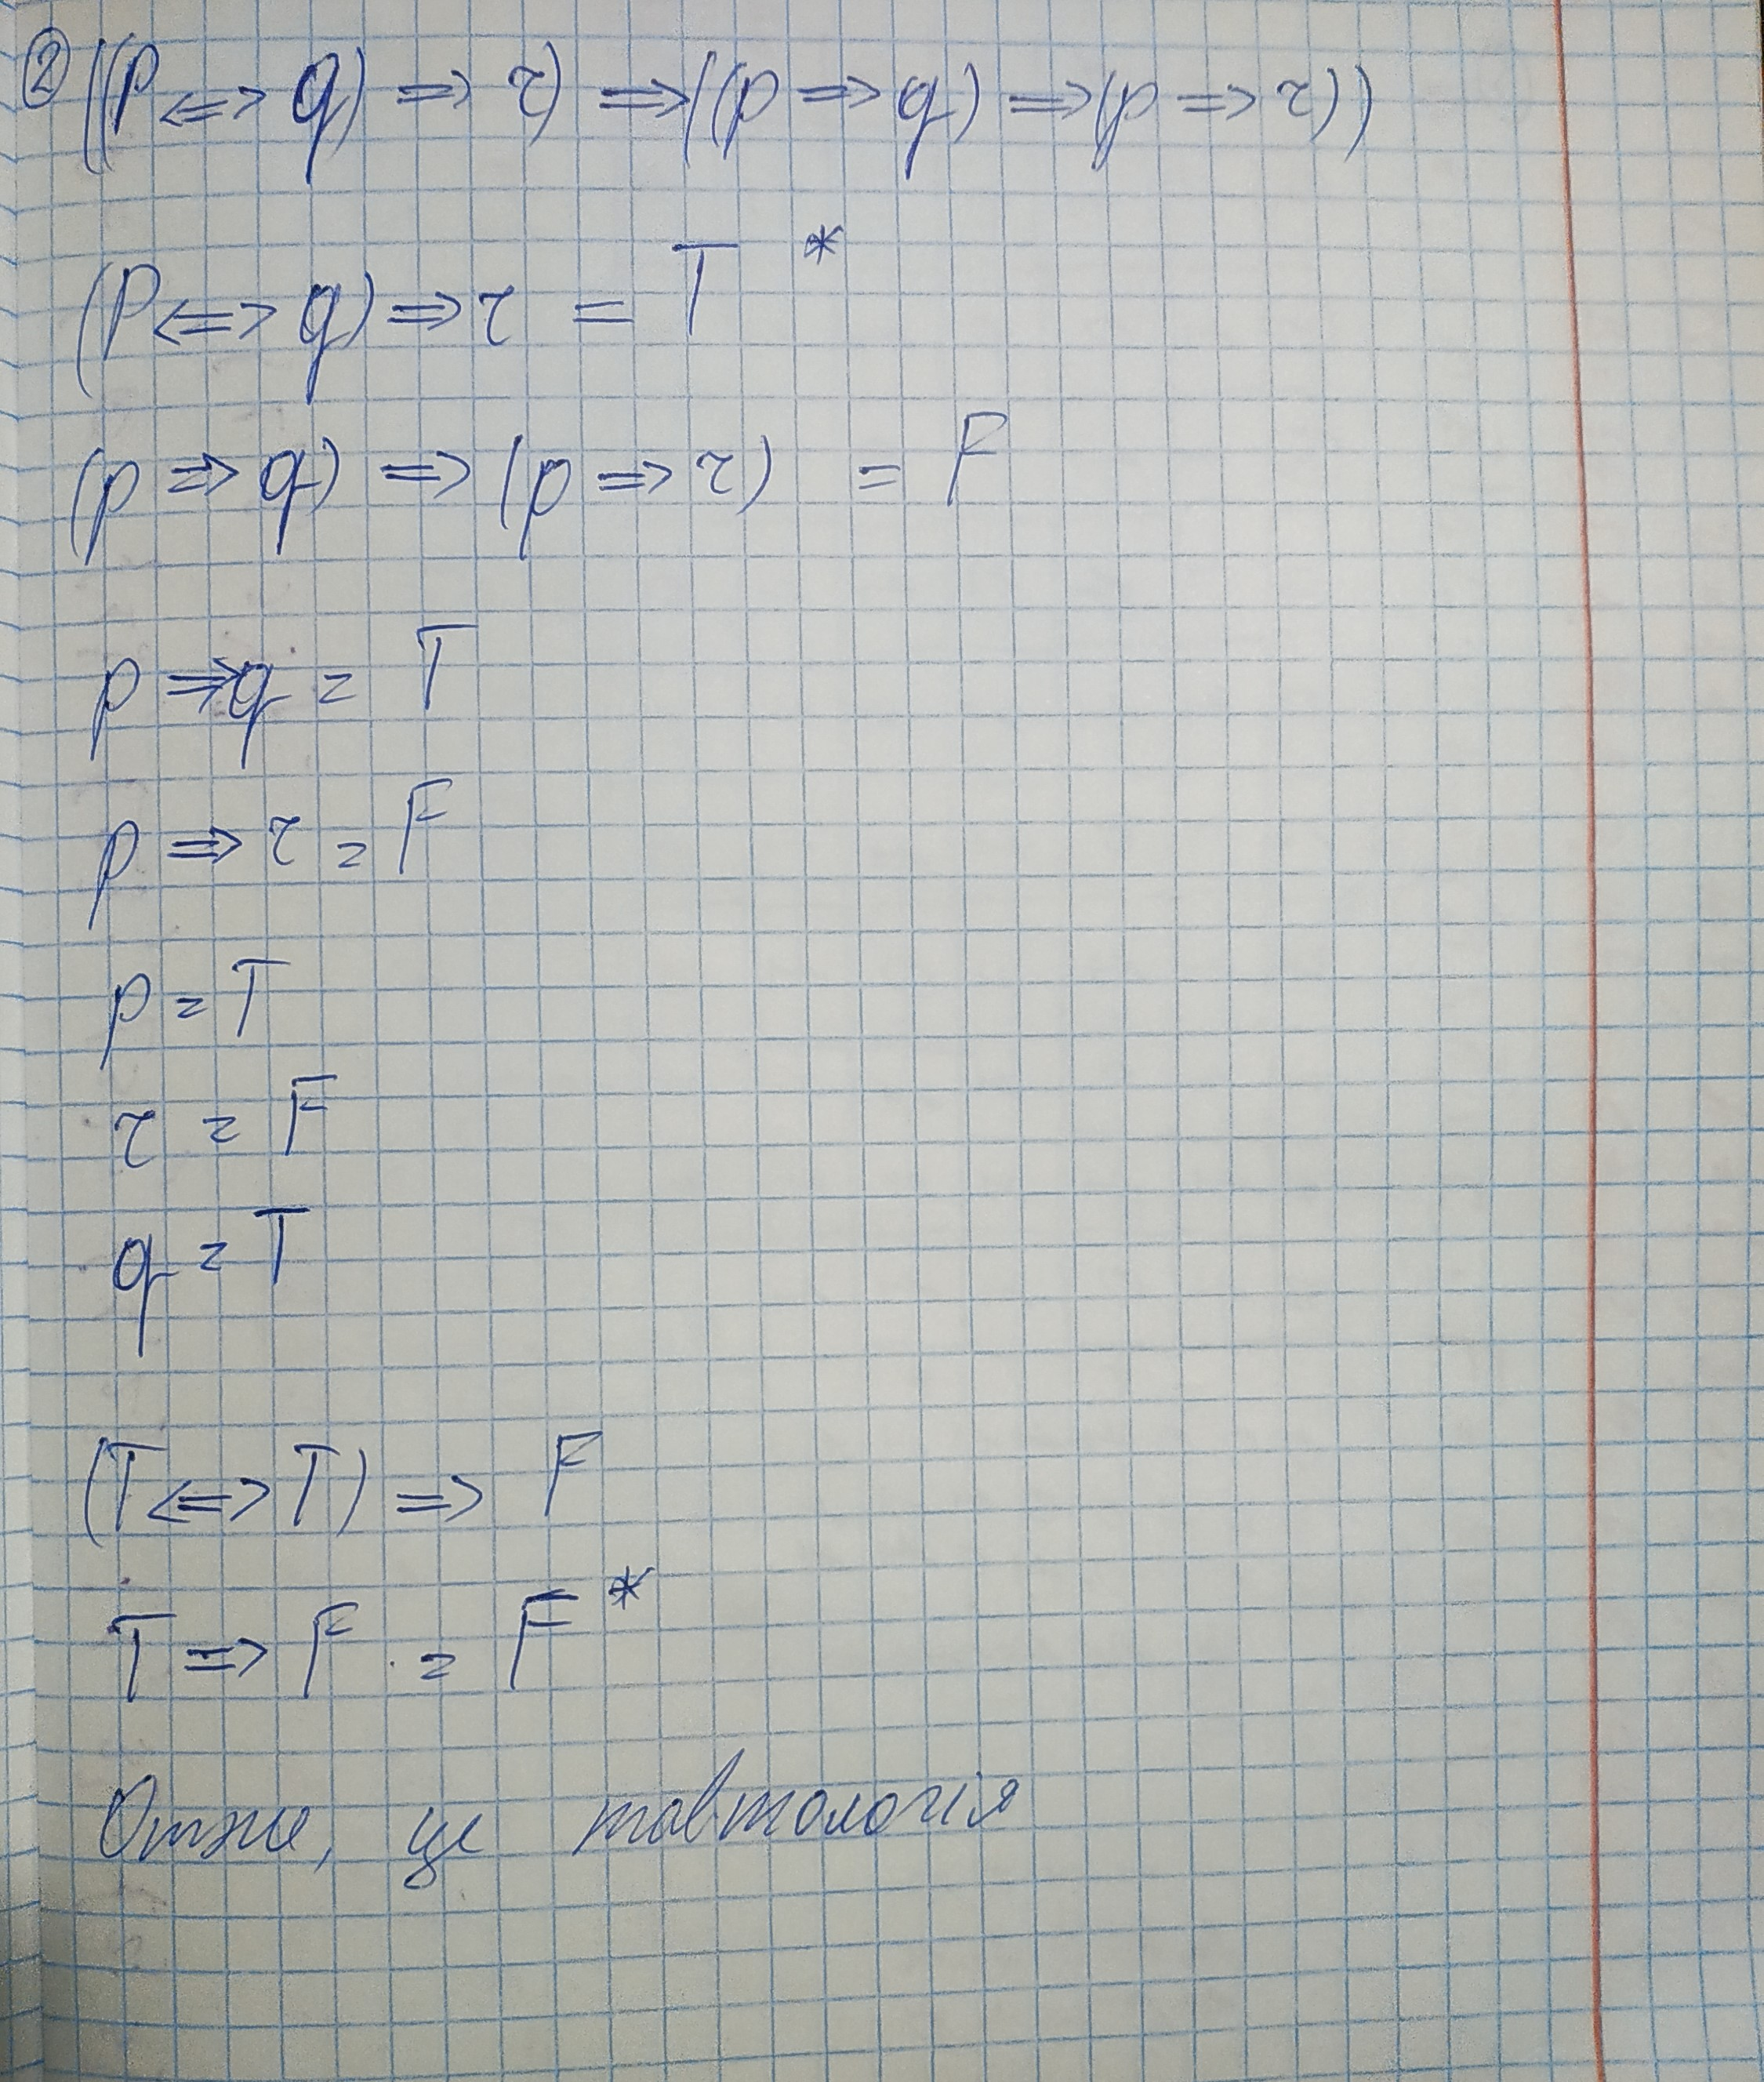 ② ((p <=> q) => r) => ((p => q) => (p => r))
(p <=> q) => r = T *
(p => q) => (p => r) = F
p => q = T
p => r = F
p = T
r = F
q = T
(T <=> T) => F
T => F = F *
Отже, це тавтологія